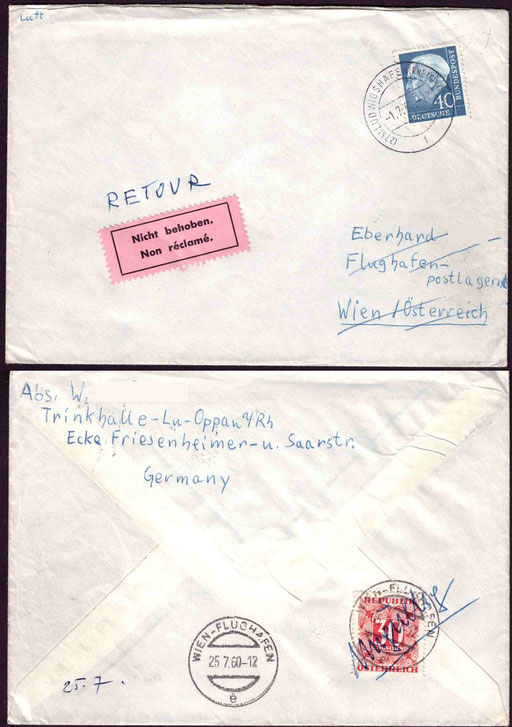 Luft
(22b) LUDWIGSHAFEN
-1.7.
f
40
DEUTSCHE
BUNDESPOST
RETOUR
Nicht behoben.
Non réclamé.
Eberhard
Flughafen-
postlagernd
Wien/Österreich
Abs. W.
Trinkhalle-Lu-Oppau a/Rh
Ecke Friesenheimer-u. Saarstr.
Germany
WIEN-FLUGHAFEN
REPUBLIK
30
ÖSTERREICH
WIEN-FLUGHAFEN
25.7.60-12
e
25.7.